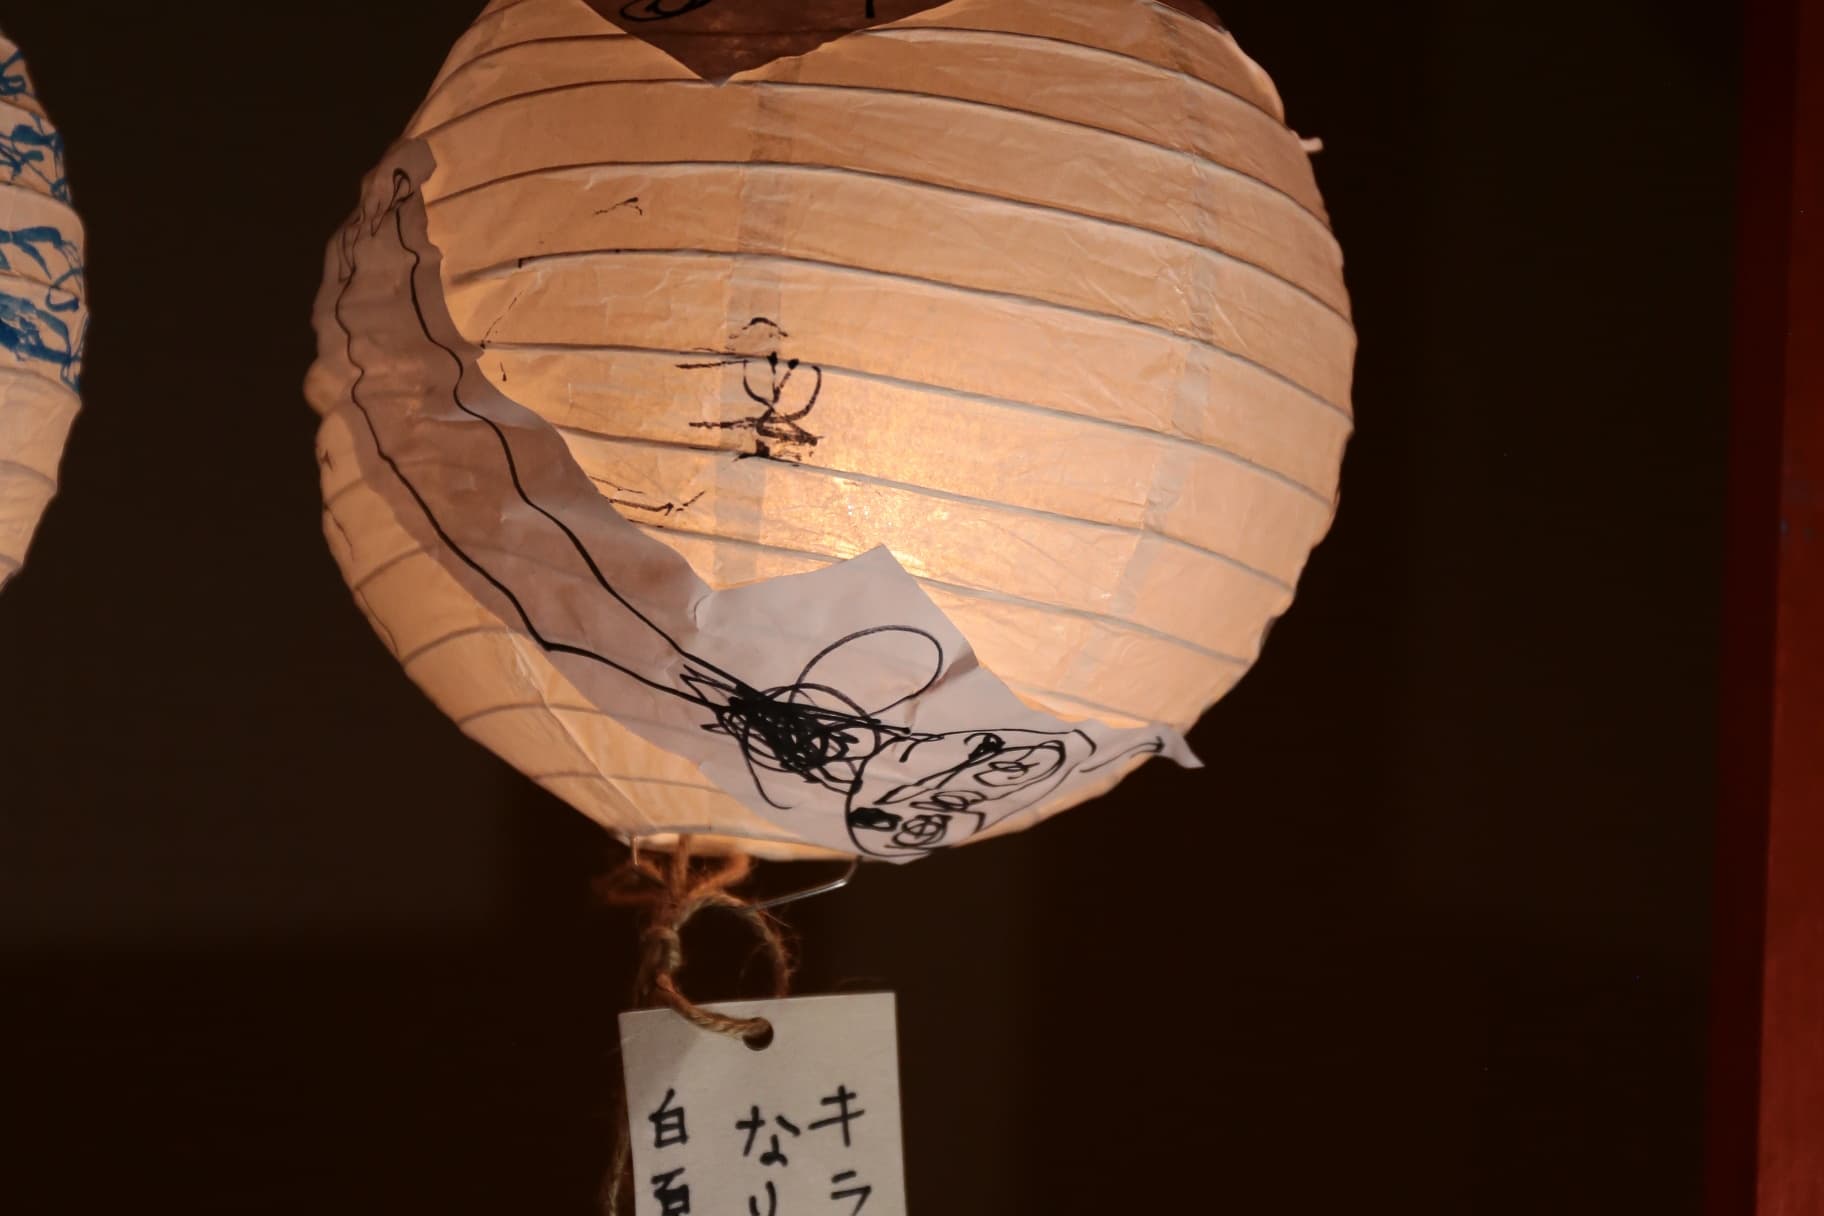 キラ
なり
白